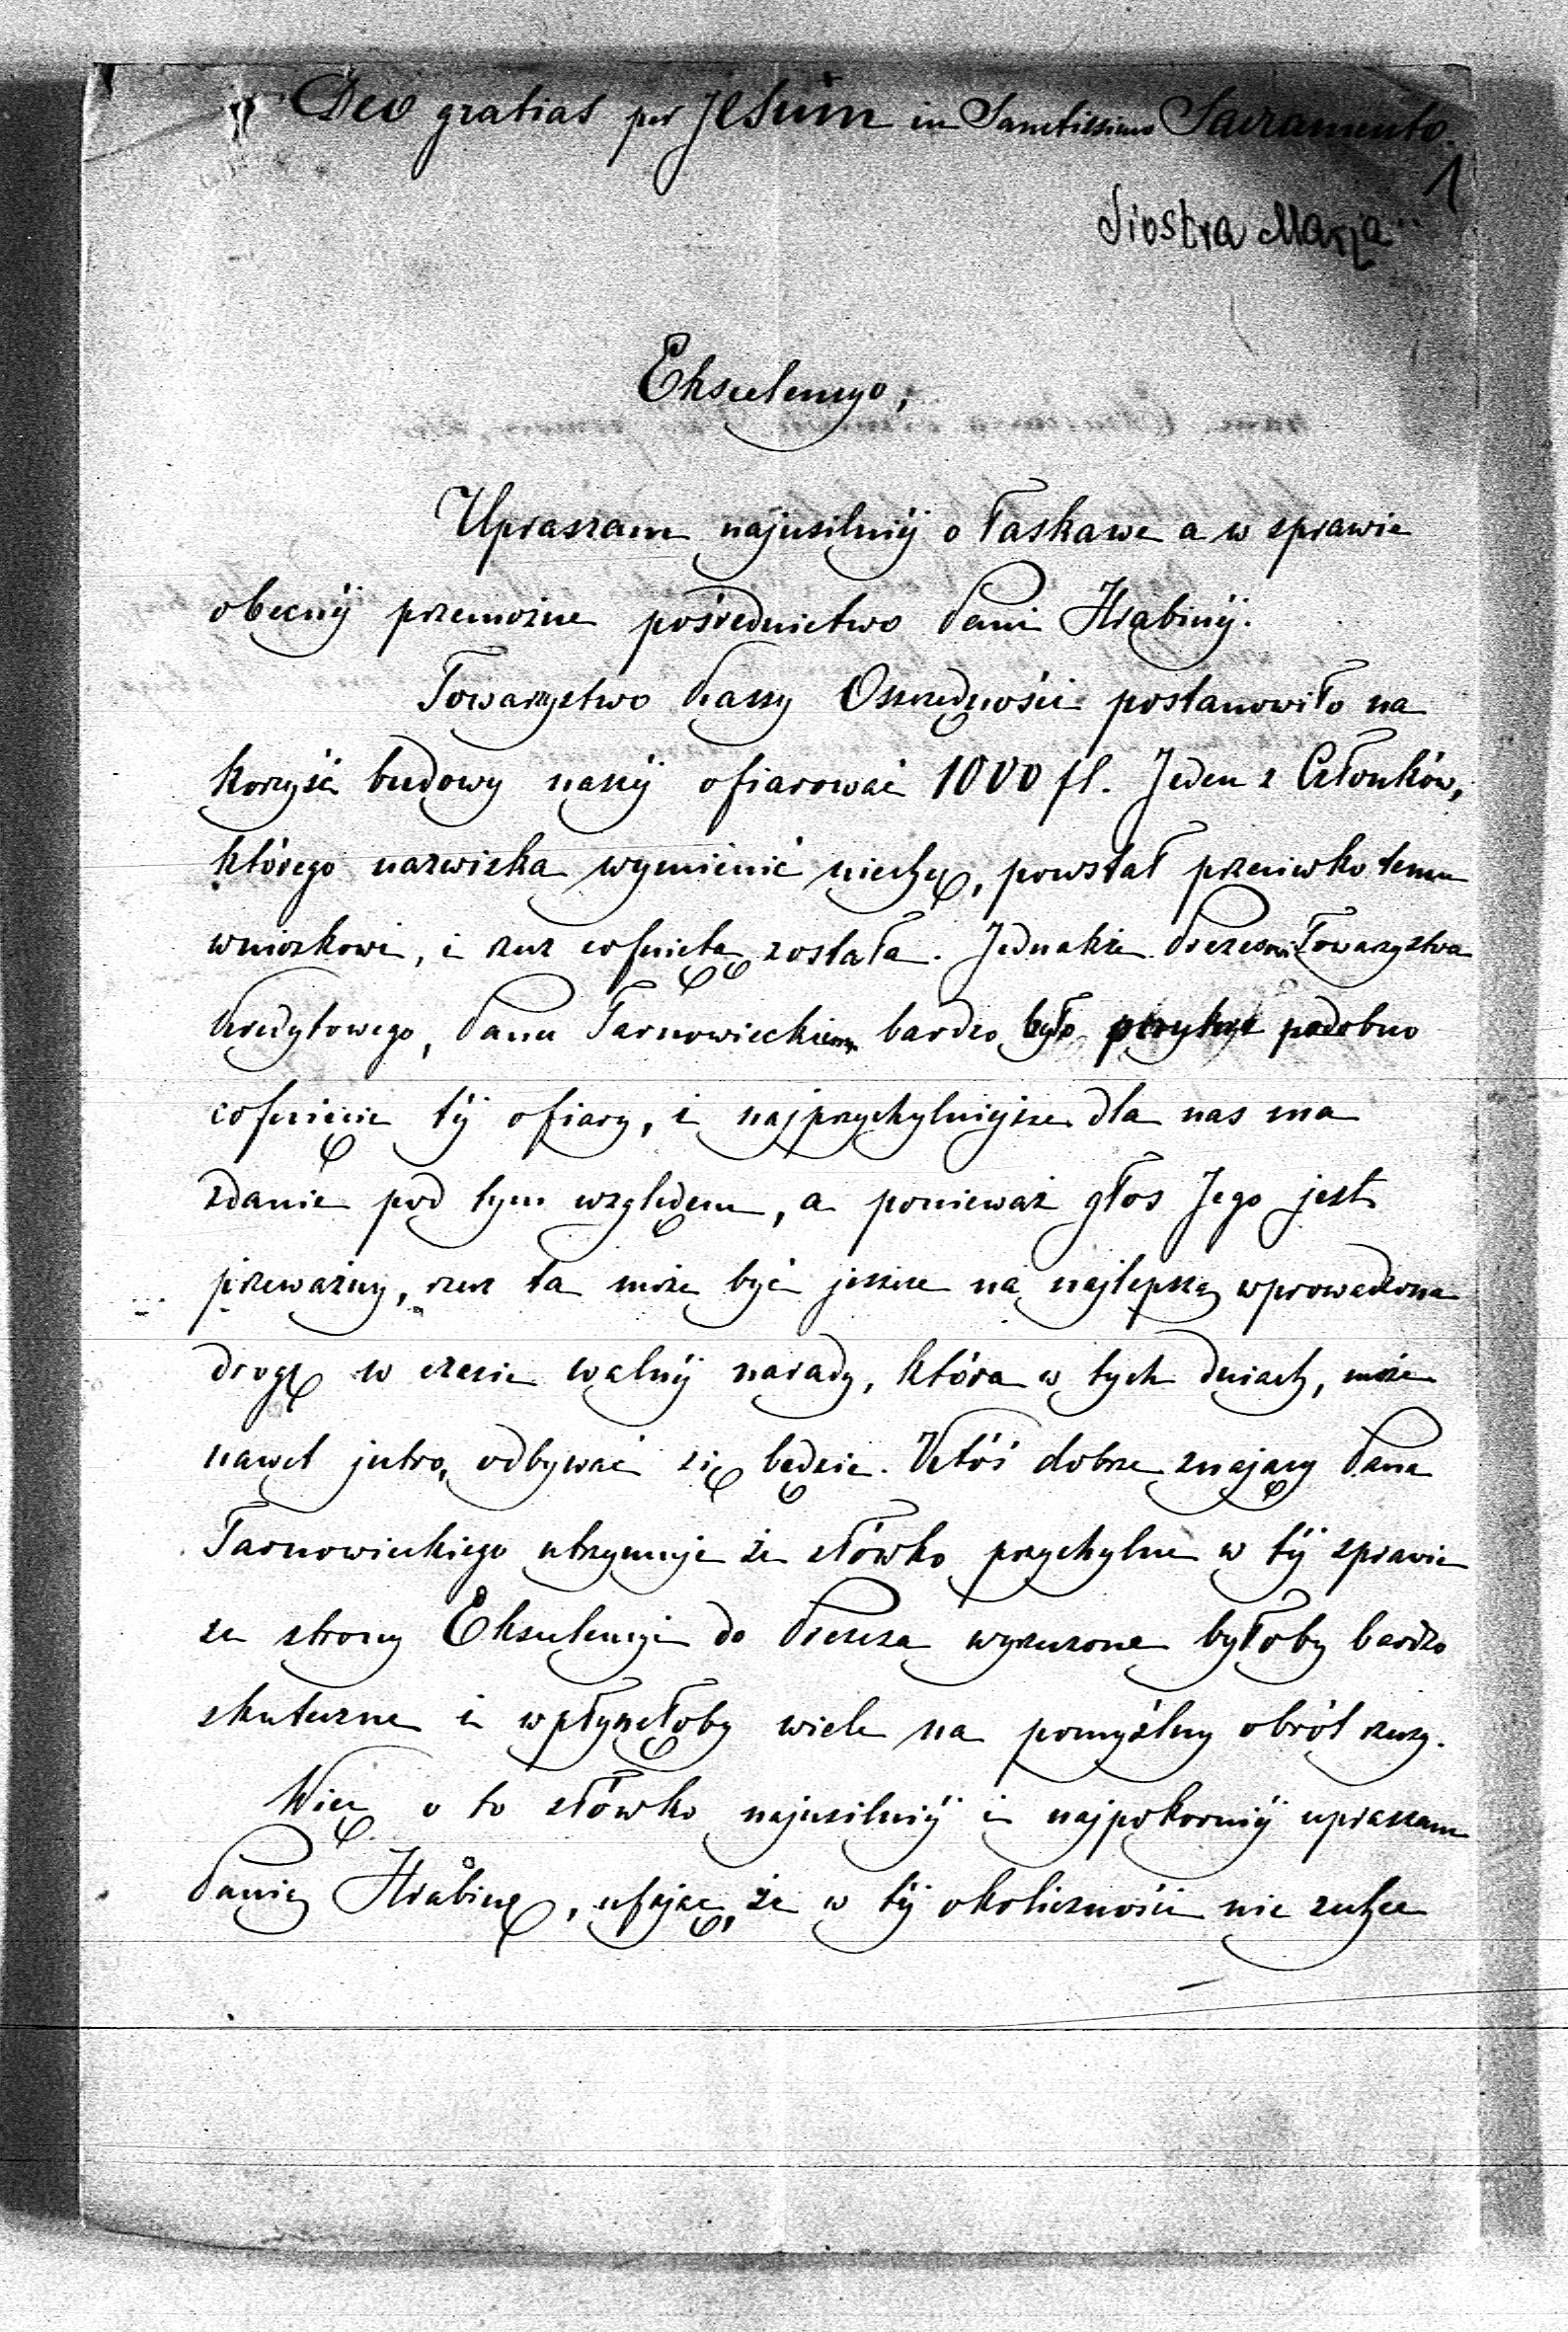 Deo gratias per Jesum in Sanctissimo Sacramento.
1
Siostra Marja
Ekscelencyo,
Upraszam najusilniéj o łaskawe a w sprawie
obecnéj przemożne pośrednictwo Pani Hrabinéj.
Towarzystwo Kassy Oszczędności postanowiło na
korzyść budowy naszéj ofiarować 1000 fl. Jeden z Członków,
którego nazwiska wymienić niechcę, powstał przeciwko temu
wnioskowi, i rzecz cofniętą została. Jednakże Prezesowi Towarzystwa
Kredytowego, Panu Tarnowieckiemu bardzo było przykre podobno
cofnięcie téj ofiary, i najprzychylniejsze dla nas ma
zdanie pod tym względem, a ponieważ głos Jego jest
przeważny, rzecz ta może być jeszcze na najlepszą wprowadzona
drogę w czasie walnéj narady, która w tych dniach, może
nawet jutro, odbywać się będzie. Ktoś dobrze znający Pana
Tarnowieckiego utrzymuje że słówko przychylne w téj sprawie
ze strony Ekscelencyi do Prezesa wyrzeczone byłoby bardzo
skuteczne i wpłynęłoby wiele na pomyślny obrót rzeczy.
Więc o to słówko najusilniéj i najpokorniéj upraszam
Panią Hrabinę, ufając, że w téj okoliczności nie zechce